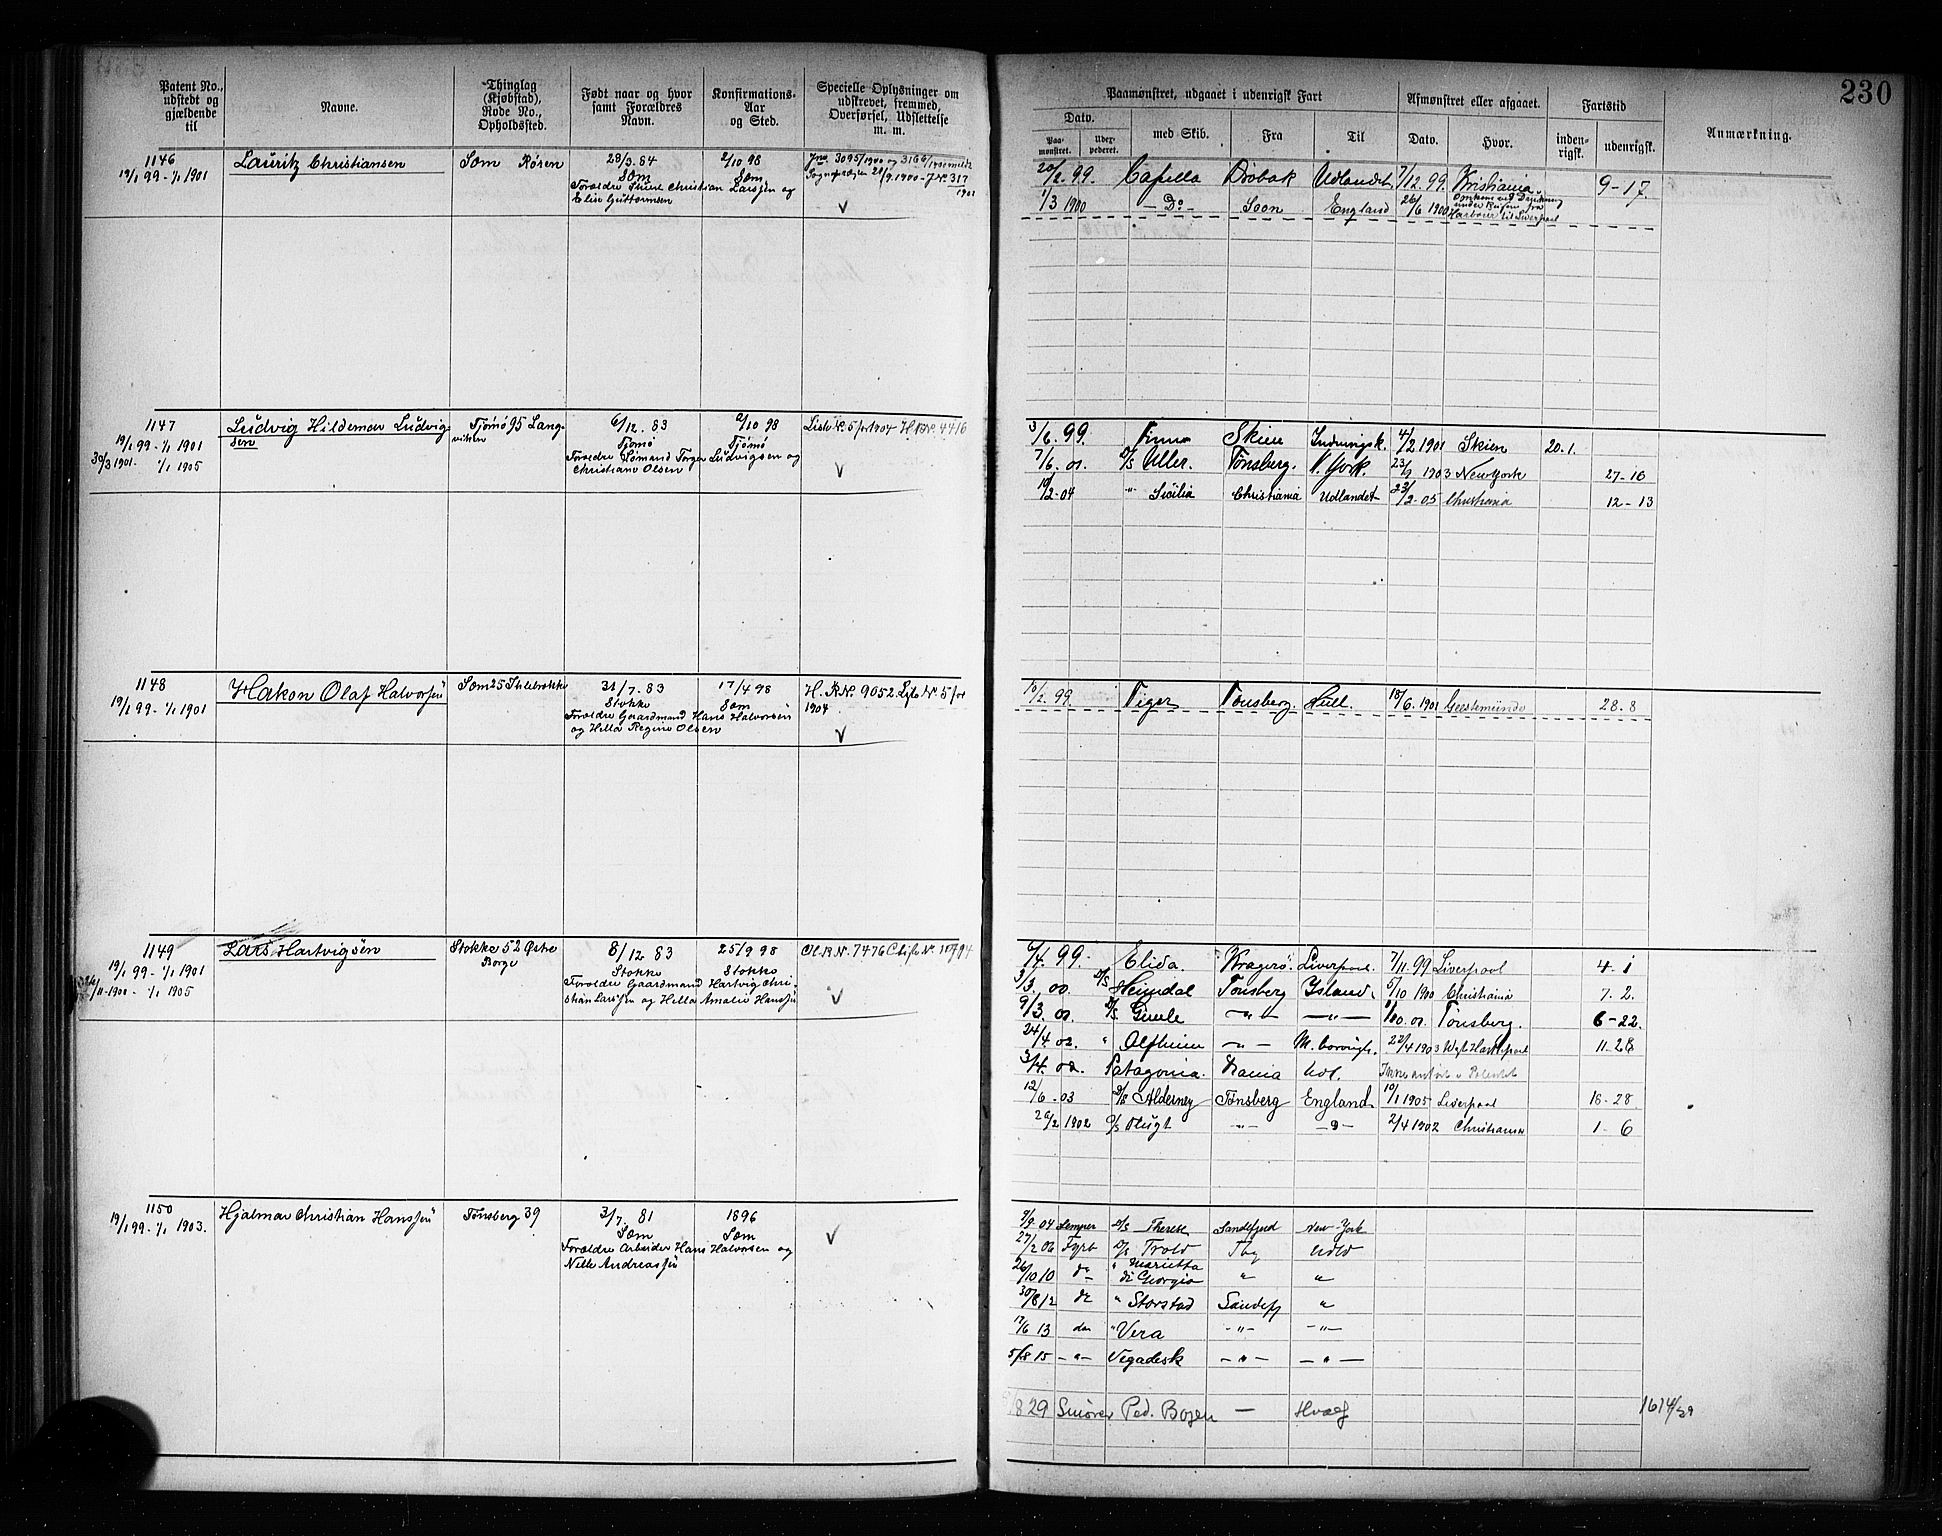 230
Patent No., udstedt og gjældende til
Navne.
Thinglag (Kjøbstad), Rode No., Opholdssted.
Født naar og hvor samt Forældres Navn.
Konfirmations-Aar og Sted.
Specielle Oplysninger om udskrevet, fremmed, Overførsel, Udslettelse m. m.
Paamønstret, udgaaet i udenrigsk Fart
Dato.
Paa-mønstret.
Uder-pederet.
med Skib.
Fra
Til
Afmønstret eller afgaaet.
Dato.
Hvor.
Fartstid
inden-rigsk.
udenrigsk.
Anmærkning.
1146
19/1 99 - 1/1 1901
Lauritz Christiansen
Sem Rosen
28/3. 84
Sem
Forældre Christian Larssen og
Elise Guttormsen
2/10 98
Sem
20/2. 99. Capella Drøbak Udlandet 7/12. 99. Kristiania. 9-17.
1/3 1900 - Do - Soon England 26/6 1900 Omkom ved Drukning
under Reisen fra
Harbour til Liverpool
1147
19/1 99 - 1/1 1901
30/3 1901. - 1/1 1905
Ludvig Hildemar Ludvig-
sen
Tjømø 95 Lang-
viken
6/12. 83
Tjømø
Forældre Sømand Torger Ludvigsen og
Christiane Olsen
2/10 98
Tjømø
H.R.No. 4416
3/6. 99. Skien Indenrigsk. 4/2 1901 Skien 20.1.
7/6. 01. D/S Uller. Tønsberg. N. York. 1903 New York 27-16
10/2-04 " Sicilia Christiania Udlandet 23/2-05 Christiania 12-13
1148
19/1 99 - 1/1 1901
Hakon Olaf Halvorsen
Sem 25
31/7. 83
Stokke
Forældre Gaardmand Hans Halvorsen
og Hella Regine Olsen
17/4 98
Sem
H.R.No. 9052 No. 5 for
1904
10/2. 99. Tiger Tønsberg. Hull. 18/6. 1901 Geestemünde 28.8
1149
19/1 99 - 1/1 1901
11-1900 - 1/1 1905
Lars Hartvigsen
Stokke 52 Østre
Borge
8/12. 83
Stokke
Forældre Gaardmand Hartvig Chri-
stian Larssen og Hella Amalie Hanssen
25/9 98
Stokke
H.R.No. 7476
6/4. 99. Elida. Kragerø. Liverpool. 7/11. 99 Liverpool 4-1
3/3. 00. D/S Heimdal Tønsberg Island. 5/10 1900 Christiania 7.2.
9/3. 01. D/S Gimle - " - - " - Tønsberg. 6-22.
24/4. 02. " Alfheim - " - M.borough. 22/4 1903 W. Hartlepool 11-28
3/4. 02. Patagonia. Udl.
12/6-03 D/S Alderney Tønsberg England. 10/1 1905 Liverpool 18-28
26/2 1902 D/S - " - - " - 2/4 1902 Christiania 1-6
1150
19/1 99 - 1/1 1903.
Hjalmar Christian Hanssen
Tønsberg 39
3/7. 81
Sem
Forældre Arbeider Hans Halvorsen og
Nille Andreassen
1896
Sem
7/9 04 Lemper D/S Therese Sandefjord New-York
27/2 06 Fyrb D/S Trold Tbg Udld
26/10 10 do " Marietta
di Giorgio " "
30/8 12 do " Storstad Sandefj "
17/6 13 do " Vera - " - - " -
5/8 15 - " - Vegadesk - " - - " -
/8 29 Smører Ped. Bogen — Hvalf 1614/29